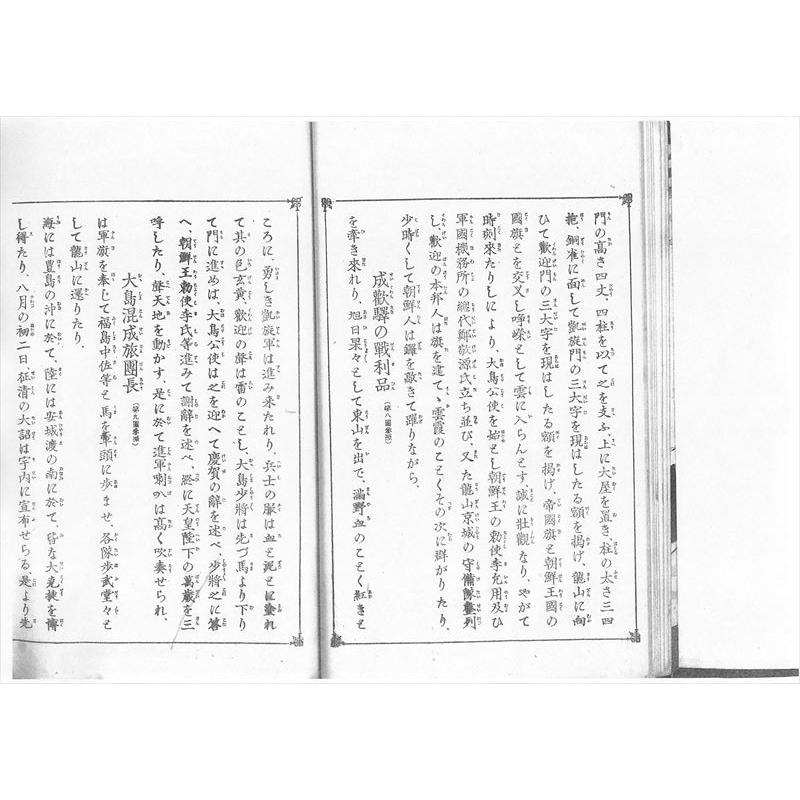 門の高さ四丈、四柱を以て之を支ふ、上に大屋を置き、柱の太さ三四
抱、銅雀に面して凱旋門の三大字を現はしたる額を掲げ、龍山に向
ひて歡迎門の三大字を現はしたる額を掲げ、帝國旗と朝鮮王國の
國旗とを交叉し、崢嶸として雲に入らんとす、誠に壯觀なり、やがて
時刻來たりしにより、大鳥公使を始とし朝鮮王の勅使李允用及ひ
軍國機務所の總代鄭敬源氏立ち並び、又た龍山京城の守備隊整列
し、歡迎の本邦人は旗を建て、雲霞のことくその次に群がりたり、
少時くして朝鮮人は鑼を敲きて躍りながら、
成歡驛の戰利品(第八圖參照)
を牽き來れり、旭日杲々として東山を出で、滿野血のことく紅きと
ころに、勇しき凱旋軍は進み來たれり、兵士の服は血と泥とに塗れ
て其の色玄黄、歡迎の聲は雷のことし、大島少將は先づ馬より下り
て門に進めば、大鳥公使は之を迎へて慶賀の辭を述べ、少將之に答
へ、朝鮮王勅使李氏等進みて謝辭を述べ、終に天皇陛下の萬歳を三
呼したり、聲天地を動かす、是に於て進軍喇叭は高く吹奏せられ、
大島混成旅團長(第九圖參照)
は軍旗を奉じて福島中佐等と馬を轡頭に歩ませ、各隊歩武堂々と
して龍山に還りたり、
海には豊島の沖に於て、陸には安城渡の南に於て、皆な大克捷を博
し得たり、八月の初二日征清の大詔は宇内に宣布せらる、是より先